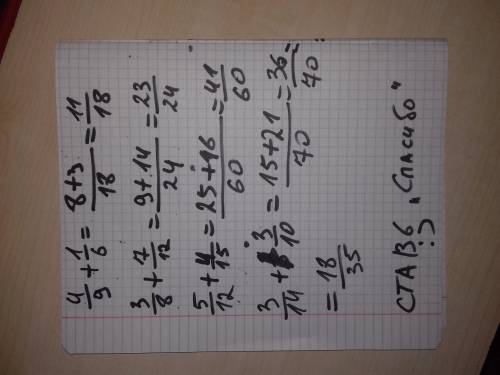 4/9 + 1/6 = (8+3)/18 = 11/18
3/8 + 7/12 = (9+14)/24 = 23/24
5/12 + 4/15 = (25+16)/60 = 41/60
3/14 + 3/10 = (15+21)/70 = 36/70 =
= 18/35
СТАВЬ „Спасибо"
:)